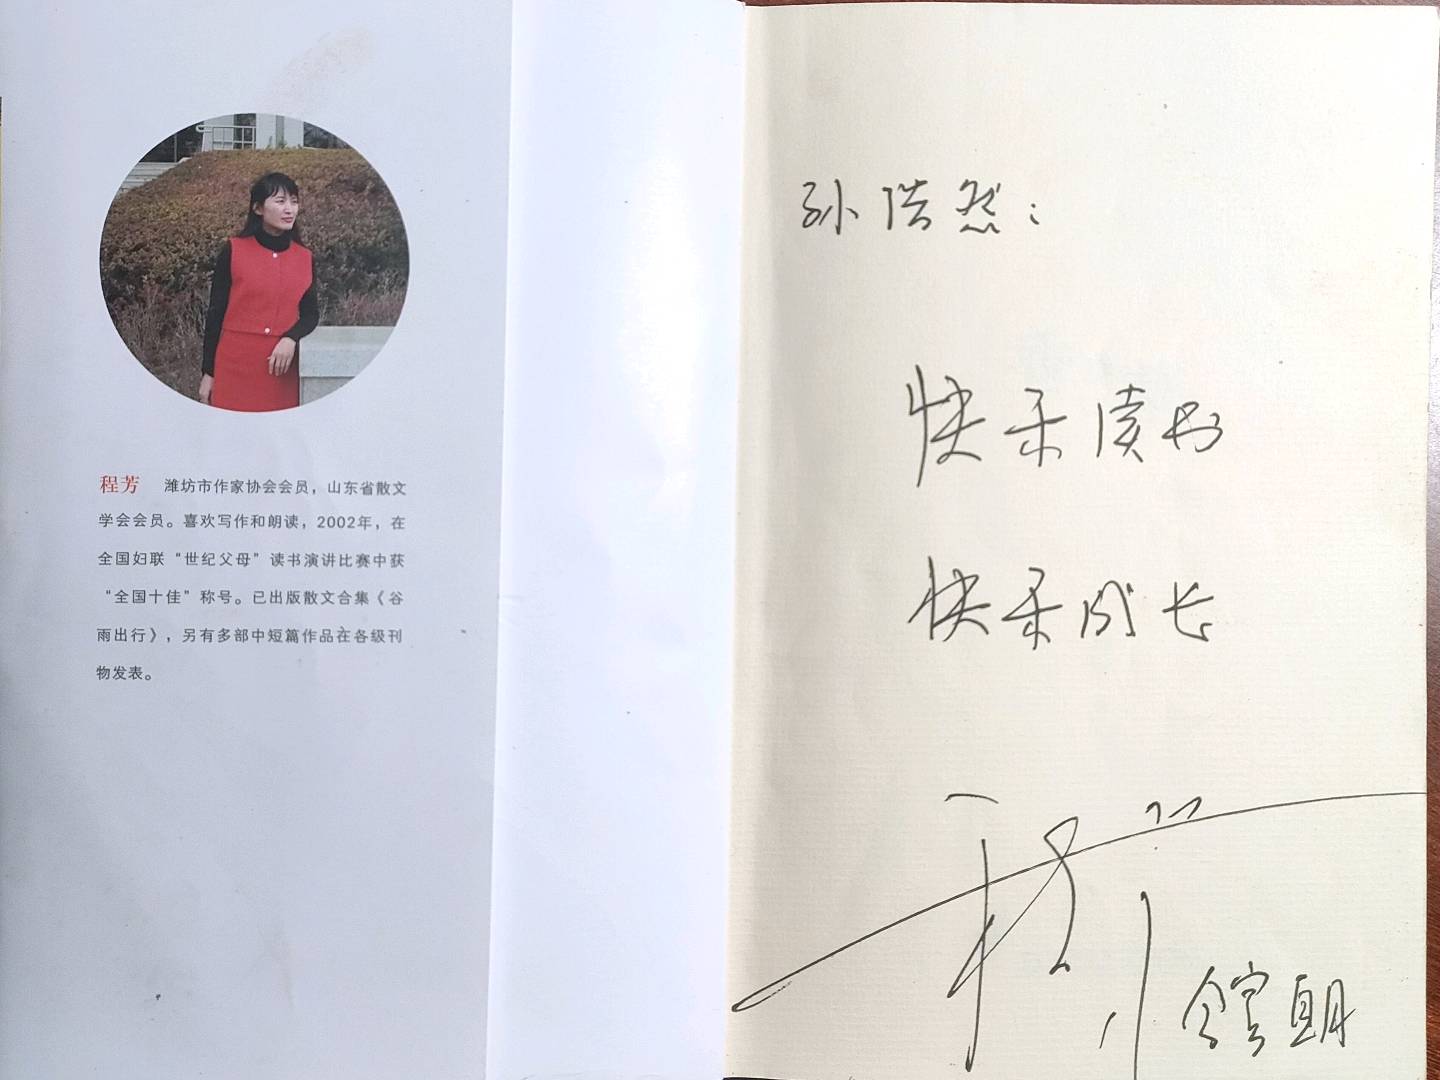 程芳 潍坊市作家协会会员，山东省散文
学会会员。喜欢写作和朗读，2002年，在
全国妇联“世纪父母”读书演讲比赛中获
“全国十佳”称号。已出版散文合集《谷
雨出行》，另有多部中短篇作品在各级刊
物发表。
孙浩然：
快乐读书
快乐成长